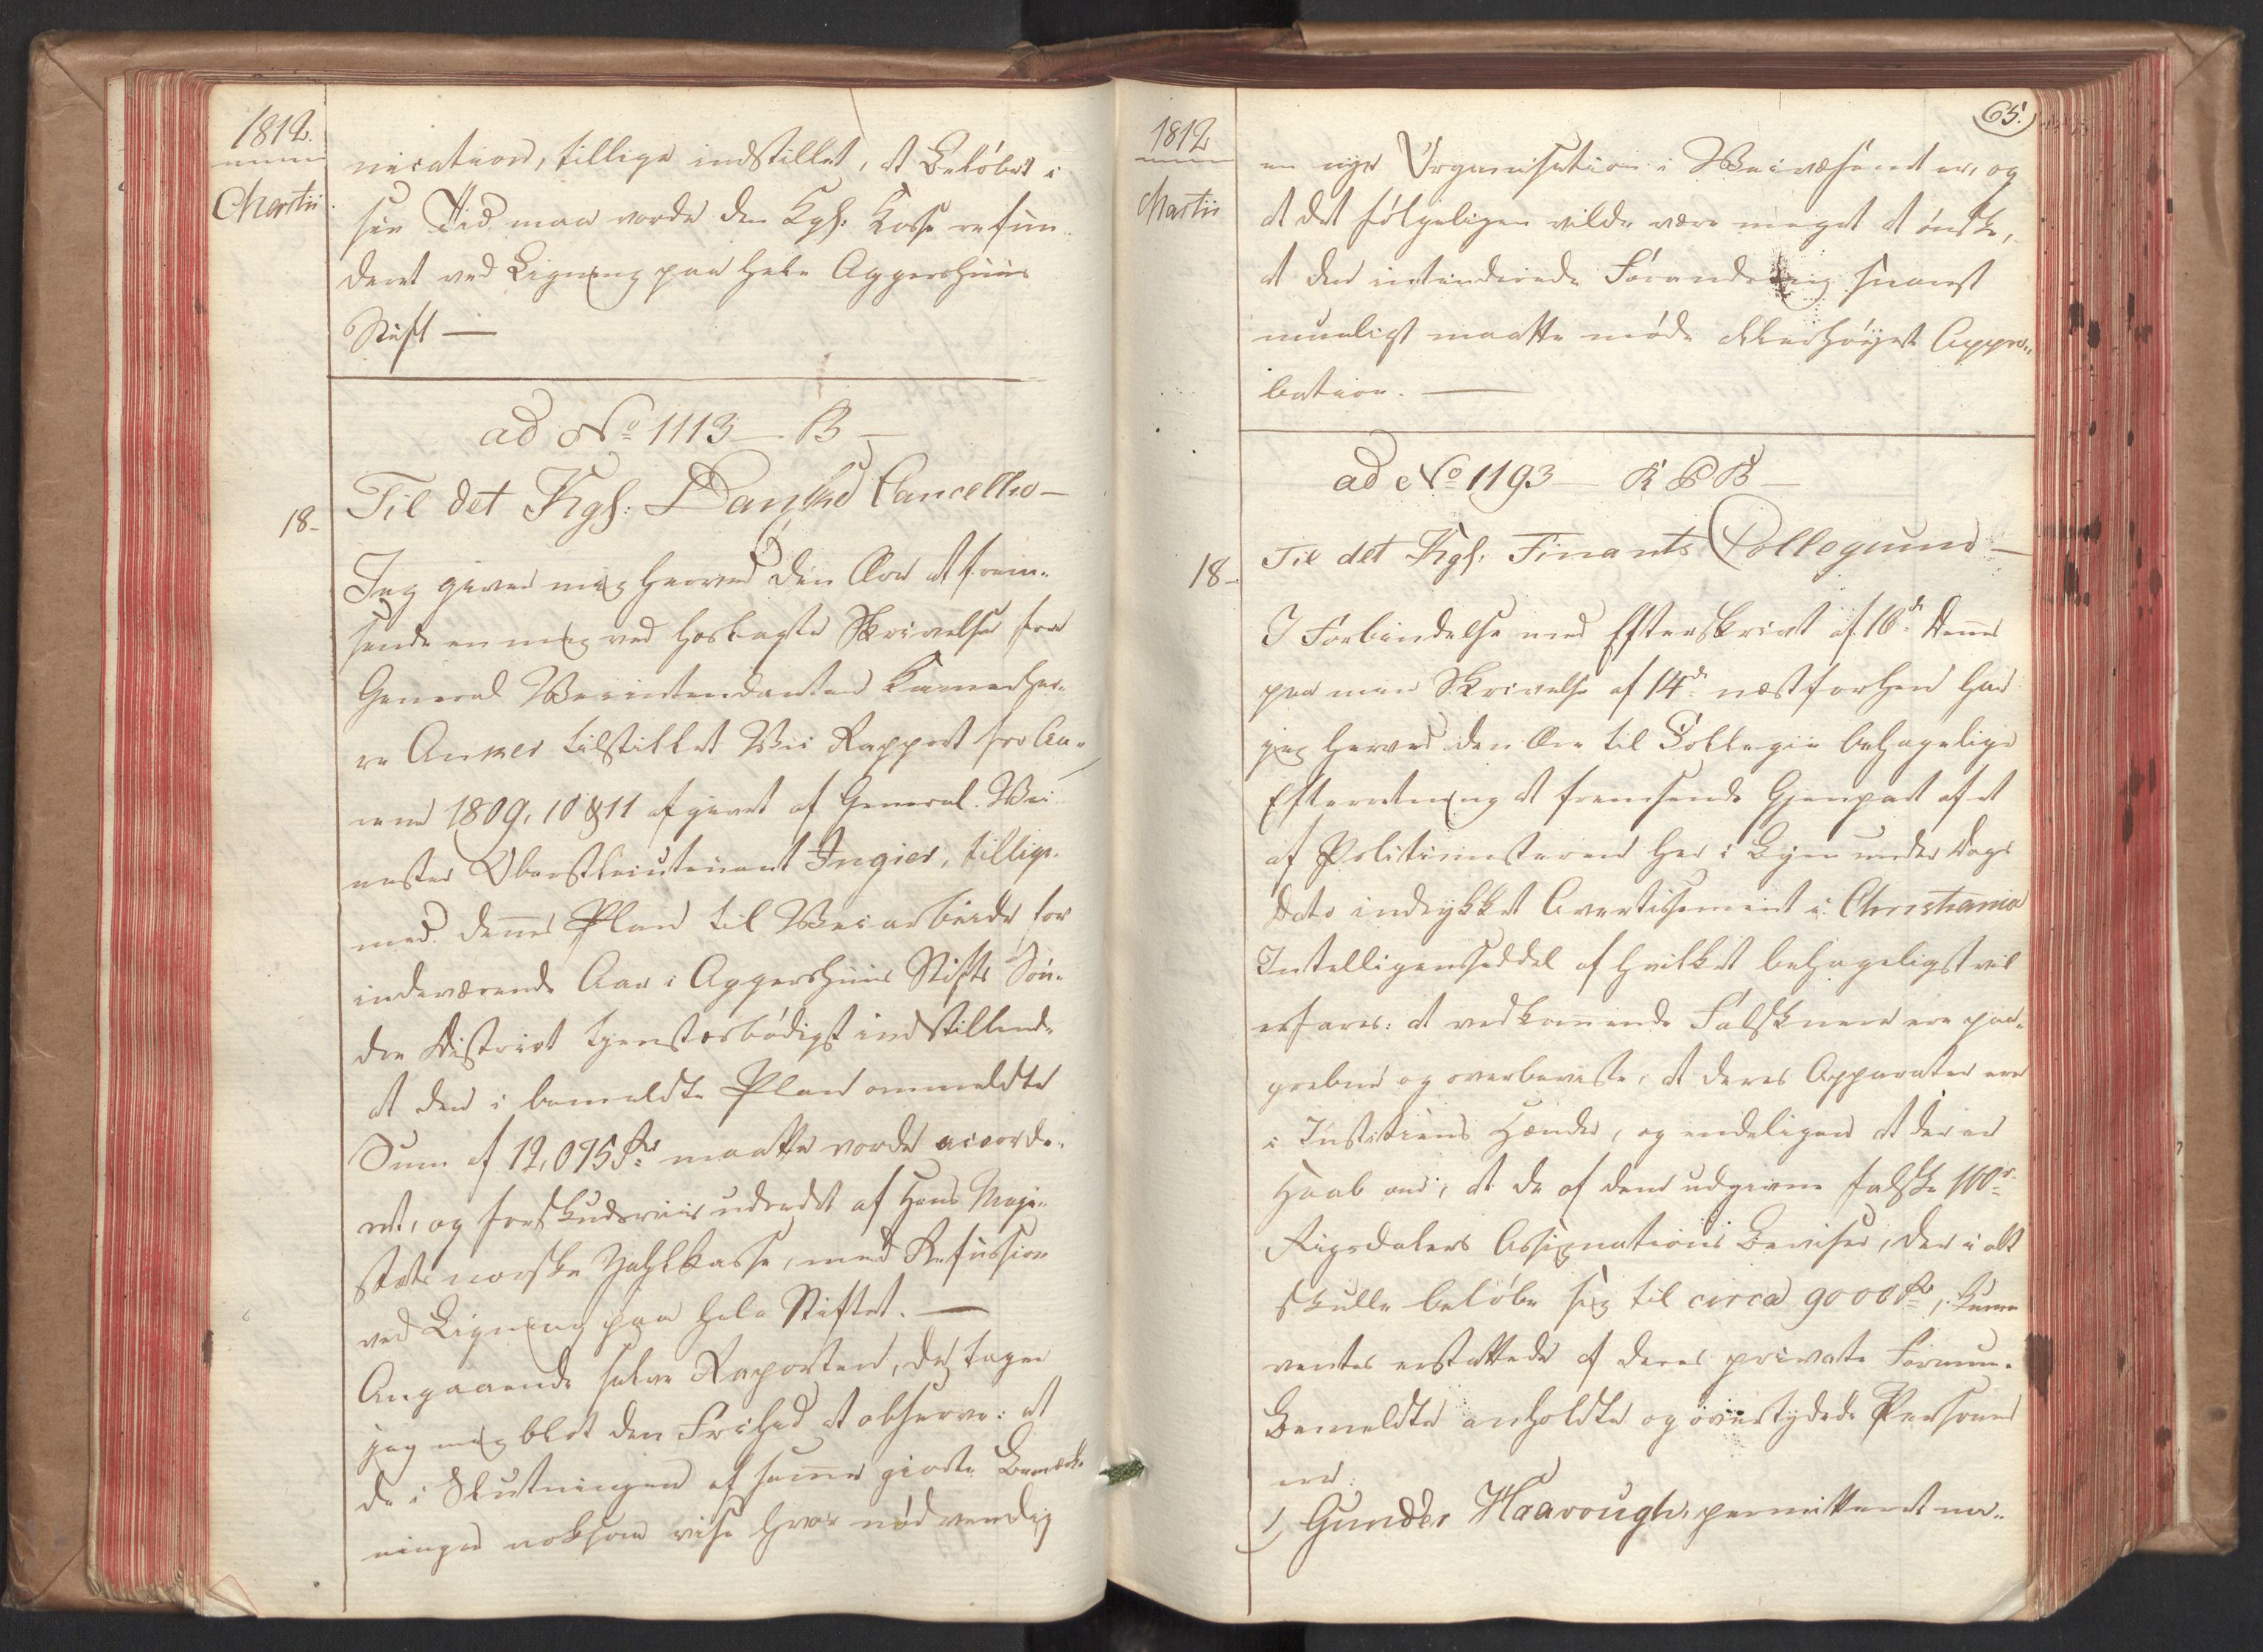 1812.
Martii
nication, tillige indstillet, at Beløbet i
sin Tid maa vorde den Kgl: Kasse refun-
deret ved Ligning paa hele Aggershuus
Stift —
ad No 1113 — B —
Til det Kgl: Danske Cancellie —
18-
Jeg giver mig herved den Ære at frem-
sende en mig ved hoslagte Skrivelse fra
General Veiintendanten Kammerher-
re Anker tilstillet Vei Rapport for Aa-
rene 1809, 10 & 11 afgivet af General-Vei-
mester Oberstlieutenant Ingier, tillige-
med dennes Plan til Veiarbeide for
indeværende Aar i Aggershuus Stifts Søn-
dre District tjenstærbødigst indstillende
at den i bemeldte Plan ommeldte
Sum af 12,095 Rd maatte vorde accorde-
ret, og forskudsviis udredet af Hans Maje-
stæts norske Zahlkasse, mod Refusion
ved Ligning paa hele Stiftet. —
Angaaende selve Raporten, da tager
jeg mig blot den Frihed at observere: at
de i Slutningen af samme giorte Bemærk-
ninger noksom vise hvor nødvendig
1812
Martii
65.
en nye Organisation i Veivæsenet er, og
at det følgeligen vilde være meget at ønske,
at den intenderede Forandring snarest
mueligt maatte møde allerhøyeste Appro-
bation. —
ad No 1193 — R & B —
Til det Kgl: Finants Collegium —
18-
I Forbindelse med Efterskrivt af 16de dennes
paa min Skrivelse af 14de næstforhen har
jeg herved den Ære til Collegiets behagelige
Efterretning at fremsende Gjenpart af et
af Politimesteren her i Byen under Dags
Dato indrykket Avertissement i Christiania
Intelligenssedel af hvilket behageligst vil
erfares: at vedkommende Falsknere ere paa-
grebne og overbeviste, at deres Apparater ere
i Justitiens Hænder, og endeligen at der er
Haab om, at de af dem udgivne falske 100r
Rigsdalers Assignations Beviser, der i alt
skulle beløbe sig til circa 9000 Rd, kunne
ventes erstattede af deres private Formue.
Bemeldte anholdte og overtydede Personer
ere:
1, Gunder Haarough, permitteret na-